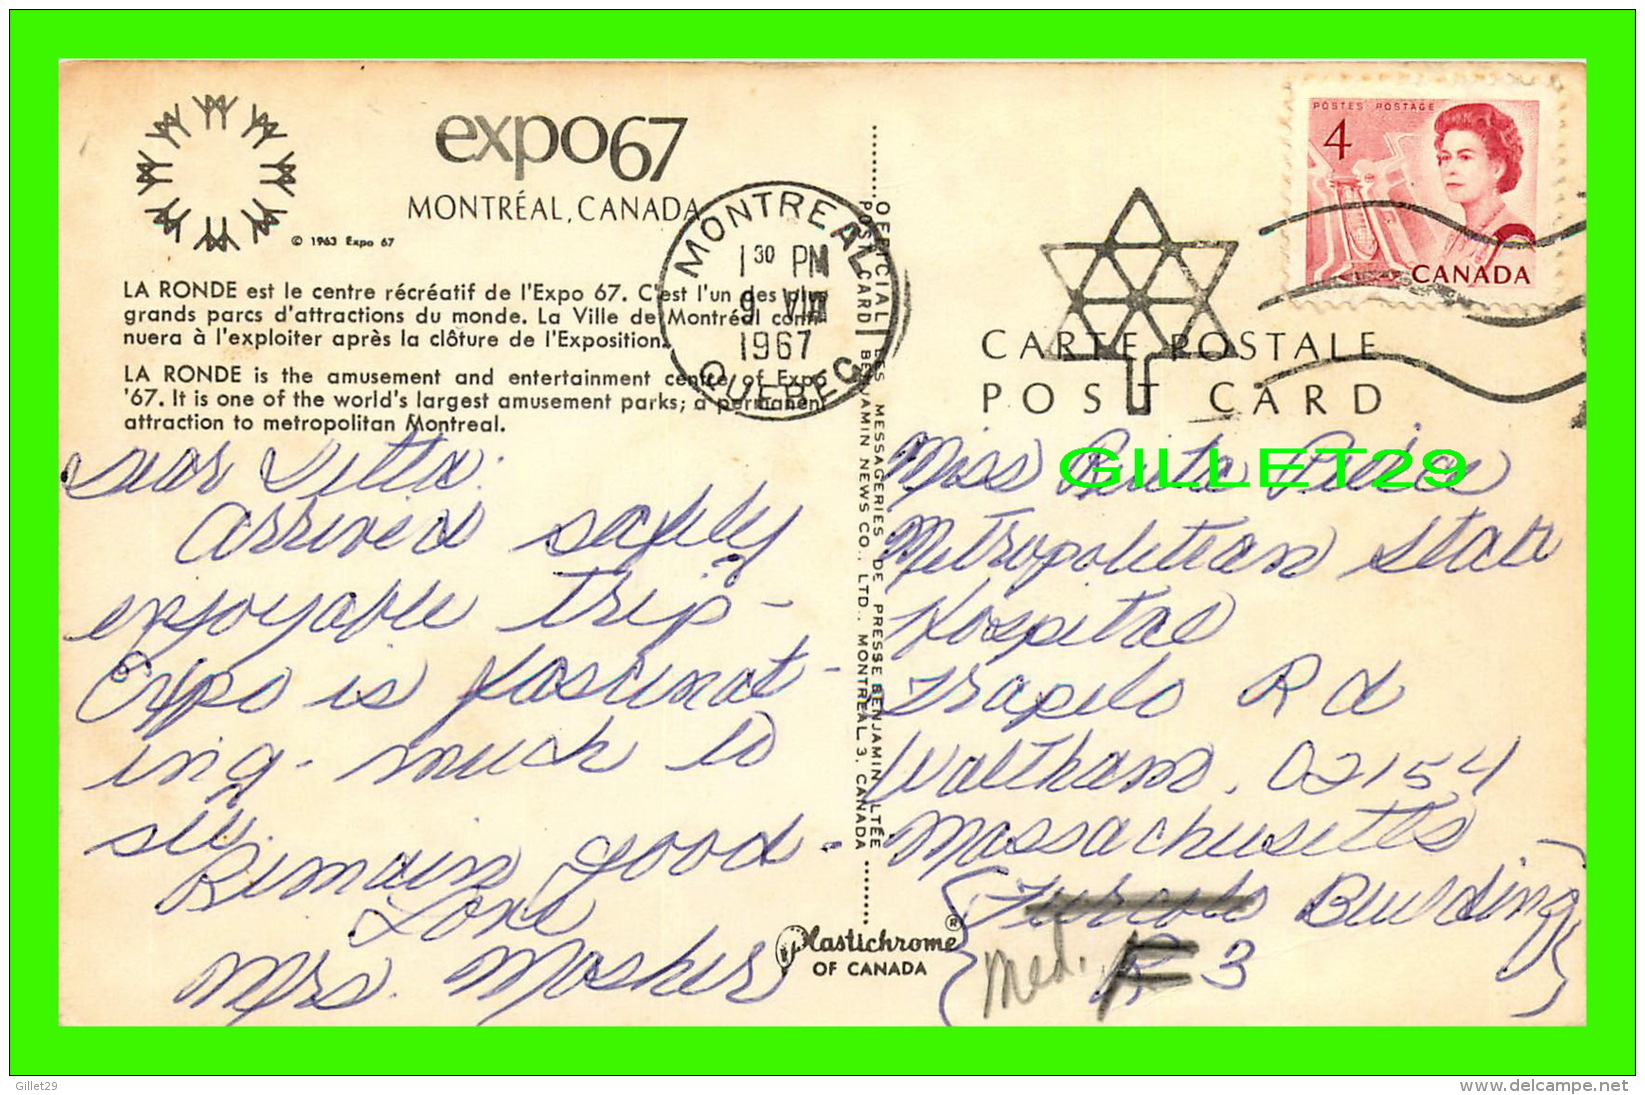 expo67
MONTRÉAL, CANADA
© 1963 Expo 67
LA RONDE est le centre récréatif de l'Expo 67. C'est l'un des plus
grands parcs d'attractions du monde. La Ville de Montréal conti-
nuera à l'exploiter après la clôture de l'Exposition.
LA RONDE is the amusement and entertainment centre of Expo
'67. It is one of the world's largest amusement parks; a permanent
attraction to metropolitan Montreal.
MONTREAL
1 30 PM
9 VIII
1967
QUEBEC
Dear
arrived safely
enjoyable trip -
Expo is fascinat -
ing - much to
see.
Remain good -
Love
Mrs. Mosher
OFFICIAL LES MESSAGERIES DE PRESSE BENJAMIN LTÉE
POST CARD BENJAMIN NEWS CO., LTD., MONTREAL 3, CANADA
Plastichrome ®
OF CANADA
POSTES POSTAGE
4
CANADA
CARTE POSTALE
POST CARD
GILLET29
Miss
Metropolitean State
Hospital
Trapelo Rd
Waltham, 02154
Massachusetts
Building
Med. F 3
Gillet29
www.delcampe.net